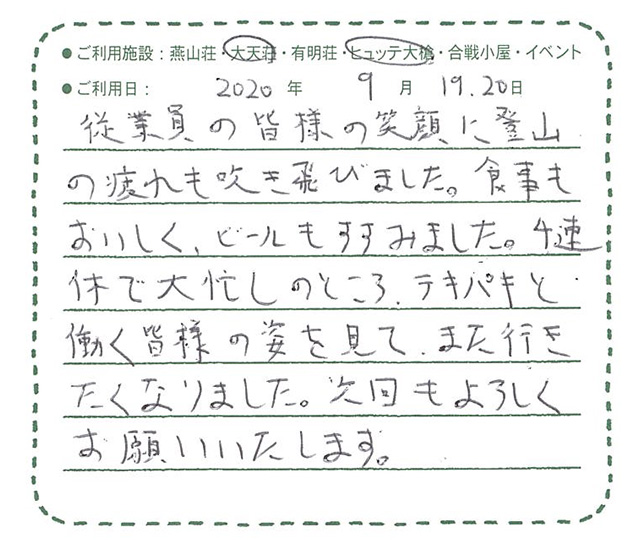 ● ご利用施設：燕山荘・大天荘・有明荘・ヒュッテ大槍・合戦小屋・イベント
● ご利用日： 2020 年 9 月 19.20日
従業員の皆様の笑顔に登山
の疲れも吹き飛びました。食事も
おいしく、ビールもすすみました。4連
休で大忙しのところ、テキパキと
働く皆様の姿を見て、また行き
たくなりました。次回もよろしく
お願いいたします。